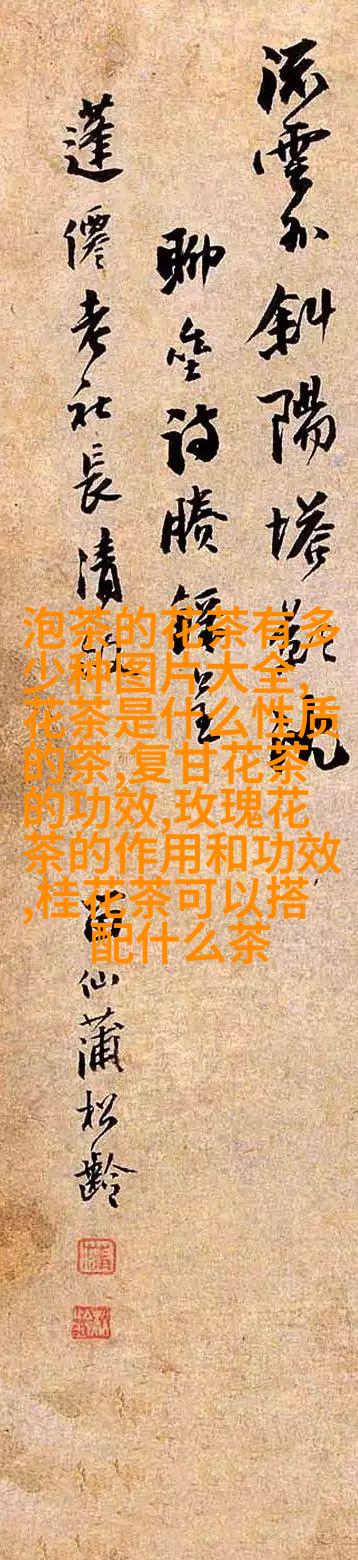 流雲外斜陽塔
聊詩賸呈
蓬僊老社長清
仙蒲松齡
泡茶的花茶有多
少种图片大全,
花茶是什么性质
的茶,复甘花茶
的功效,玫瑰花
茶的作用和功效
,桂花茶可以搭
配什么茶